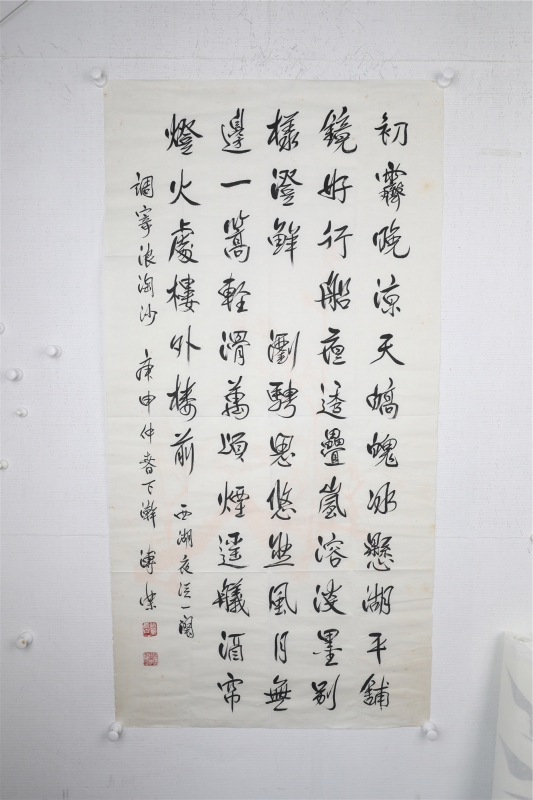 初霽晚涼天嬌魄冰懸湖平鋪
鏡好行船透疊嵐溶淡墨别
樣澄鮮 瀏騁思悠然風月無
邊一篙輕滑萬頃煙遥艤酒帘
燈火處樓外樓前 西湖夜泛一闋
調寄浪淘沙 庚申仲春下澣 溥傑